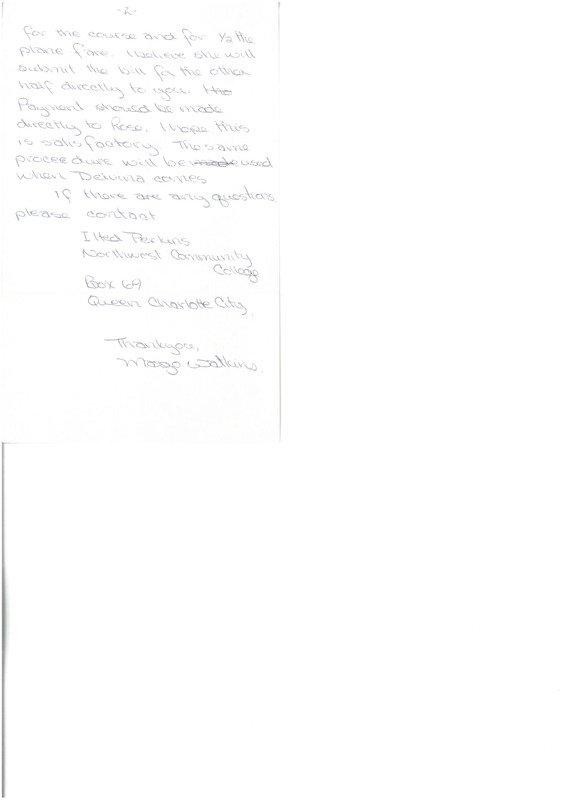 -2-
for the course and for 1/2 the
plane fare. I believe she will
submit the bill for the other
half directly to you.
Payment should be made
directly to Rose. I hope this
is satisfactory. The same
proceedure will be made used
when Delvina comes
If there are any questions
please contact
Perkins
Northwest Community
College
Box 69
Queen Charlotte City.
Thankyou,
Watkins.